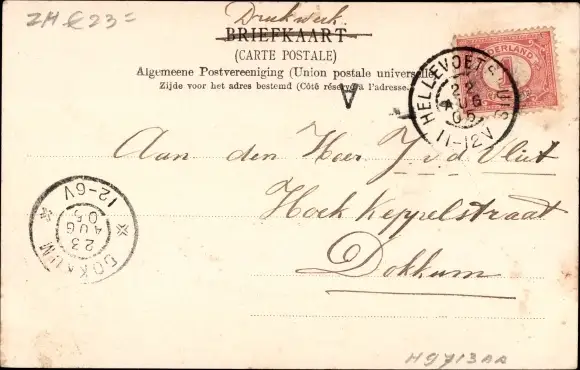 ZH € 23=
Drukwerk.
BRIEFKAART
(CARTE POSTALE)
Algemeene Postvereeniging (Union postale universelle)
Zijde voor het adres bestemd (Côté réservé à l'adresse.)
A
NEDERLAND
HELLEVOETSLUIS
22
AUG
05
11-12V
Aan den Heer J v d Vliet
Hoek Keppelstraat
Dokkum
DOKKUM
23
AUG
05
12-6V
H9713AA